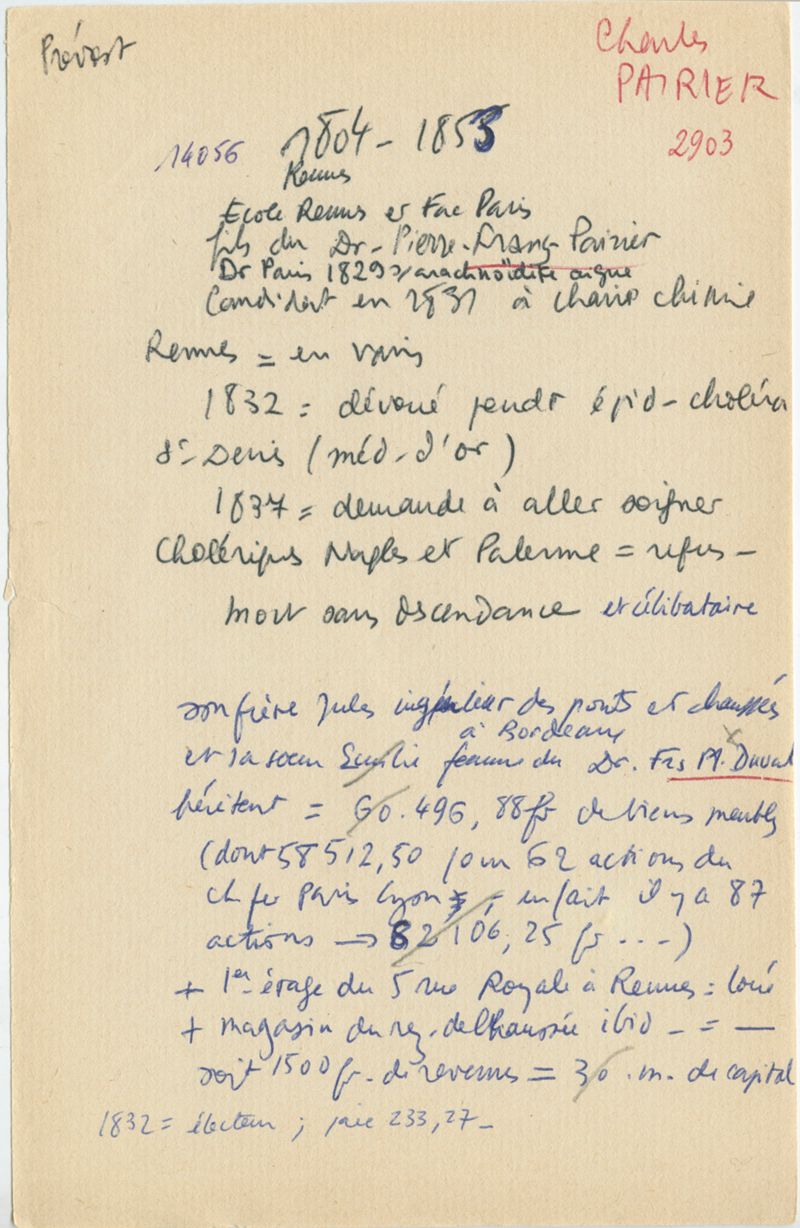 Prévost
Charles
PAIRIER
2903
14056 1804 - 1853
Rennes
Ecole Rennes et Fac Paris
fils du Dr - Pierre-Franç- Pairier
Dr Paris 1829 arachnoïdite aigue
Candidat en 1831 à chaire chimie
Rennes = en vain
1832 = dévoué pendt épid - choléra
St-Denis (méd-d'or)
1837 = demande à aller soigner
Cholériques Naples et Palerme = refus -
mort sans descendance et célibataire
son frère Jules ingénieur des ponts et chaussées
à Bordeaux
et sa soeur Emilie femme du Dr. Frs M. Duval
héritent = 60.496,88 fr de biens meubles
(dont 58512,50 pour 62 actions du
ch fer Paris Lyon ; en fait il y a 87
actions → 82106,25 fr ...)
+ 1er étage du 5 rue Royale à Rennes = loué
+ magasin du rez-de-chaussée ibid - = —
soit 1500 fr. de revenus = 30.m. de capital
1832 = électeur ; paie 233,27 -